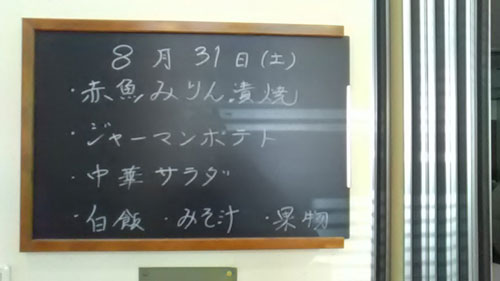 8月31日(土)
・赤魚みりん漬焼
・ジャーマンポテト
・中華サラダ
・白飯 ・みそ汁 ・果物